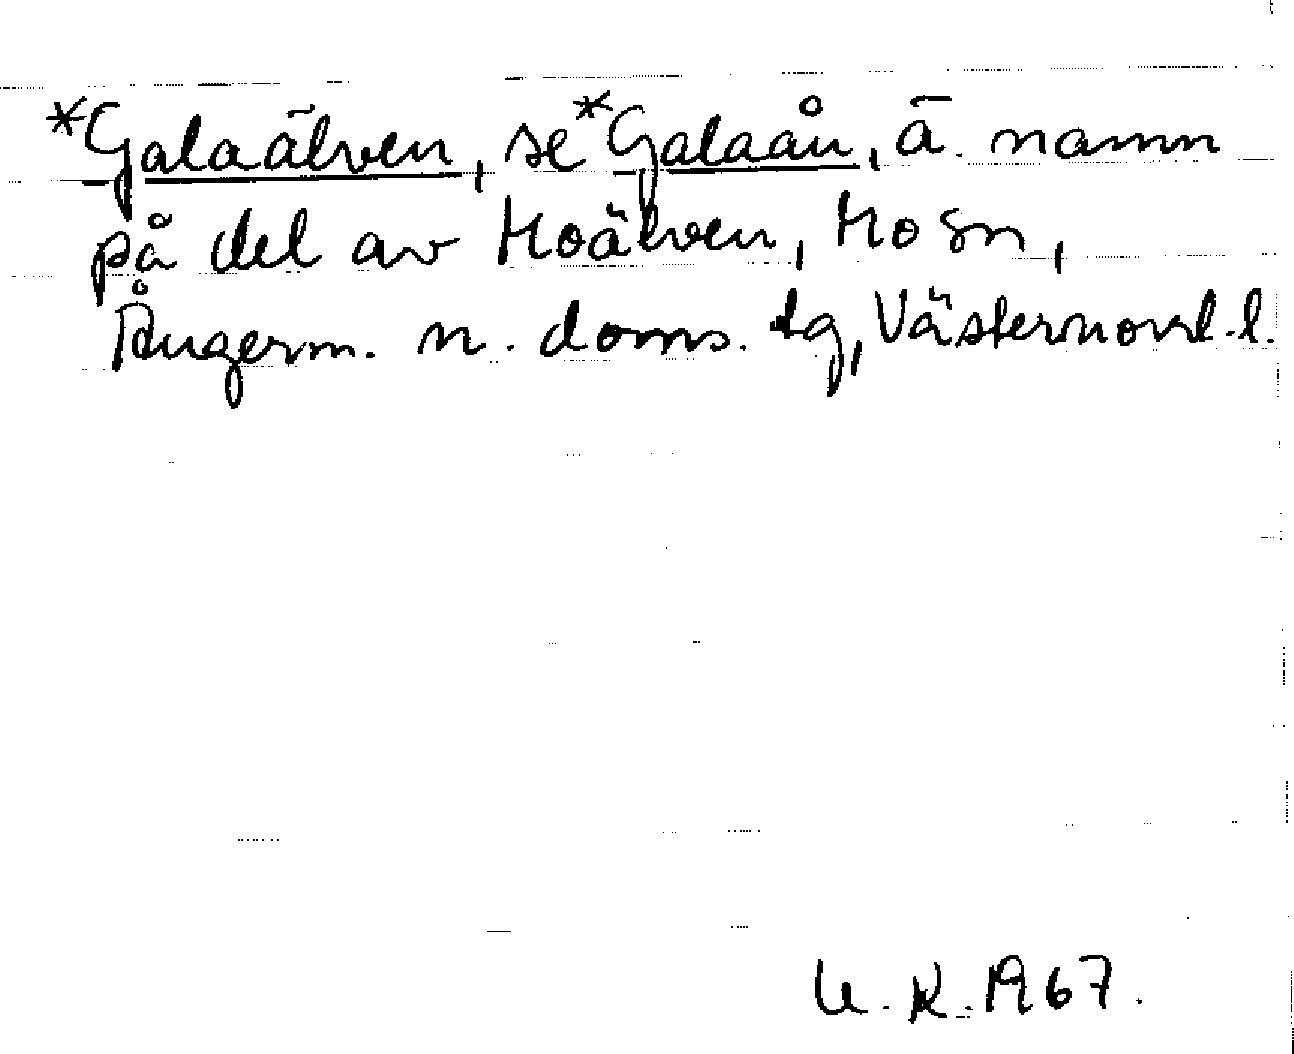 *Galaälven, se *Galaån, ä. namn
på del av Moälven, Mo sn,
Ångerm. n. doms. tg, Västernorrl. l.
U. K. 1967.